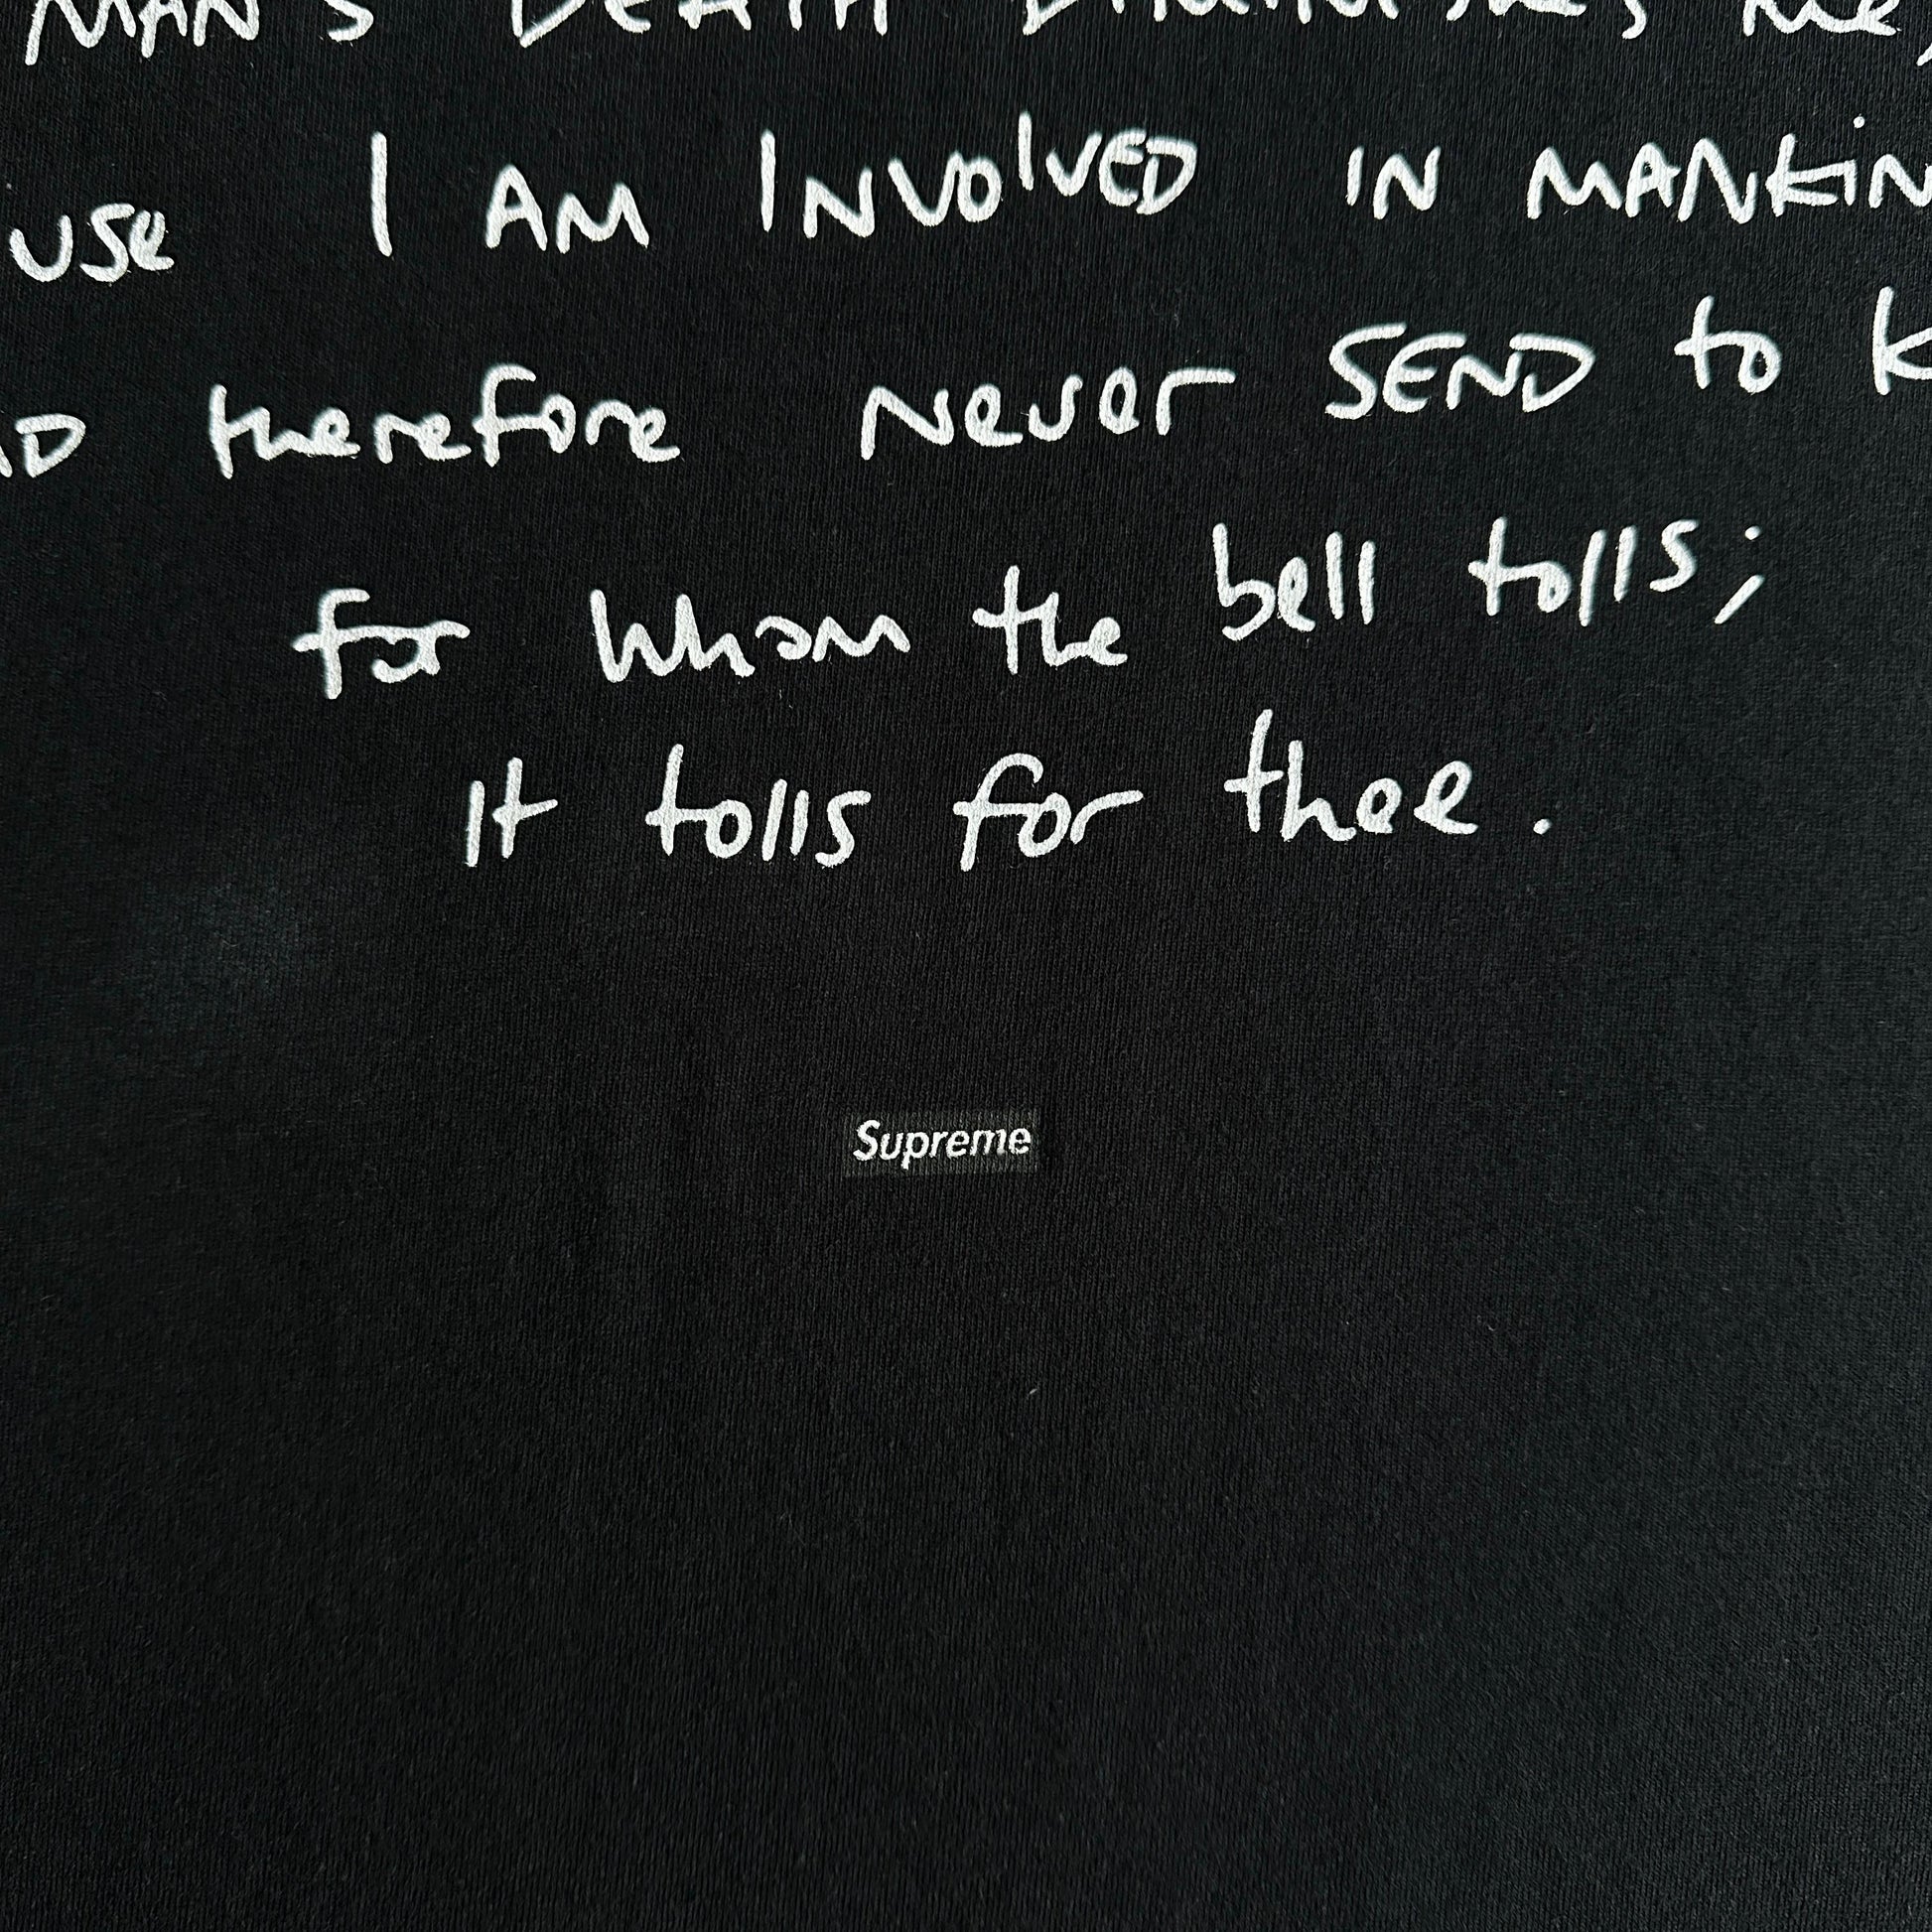 MAN'S DEATH DIMINISHES Me,
use I AM INVOLVED IN MANKIN
ND therefore Never SEND to K
for whom the bell tolls;
It tolls for thee.
Supreme